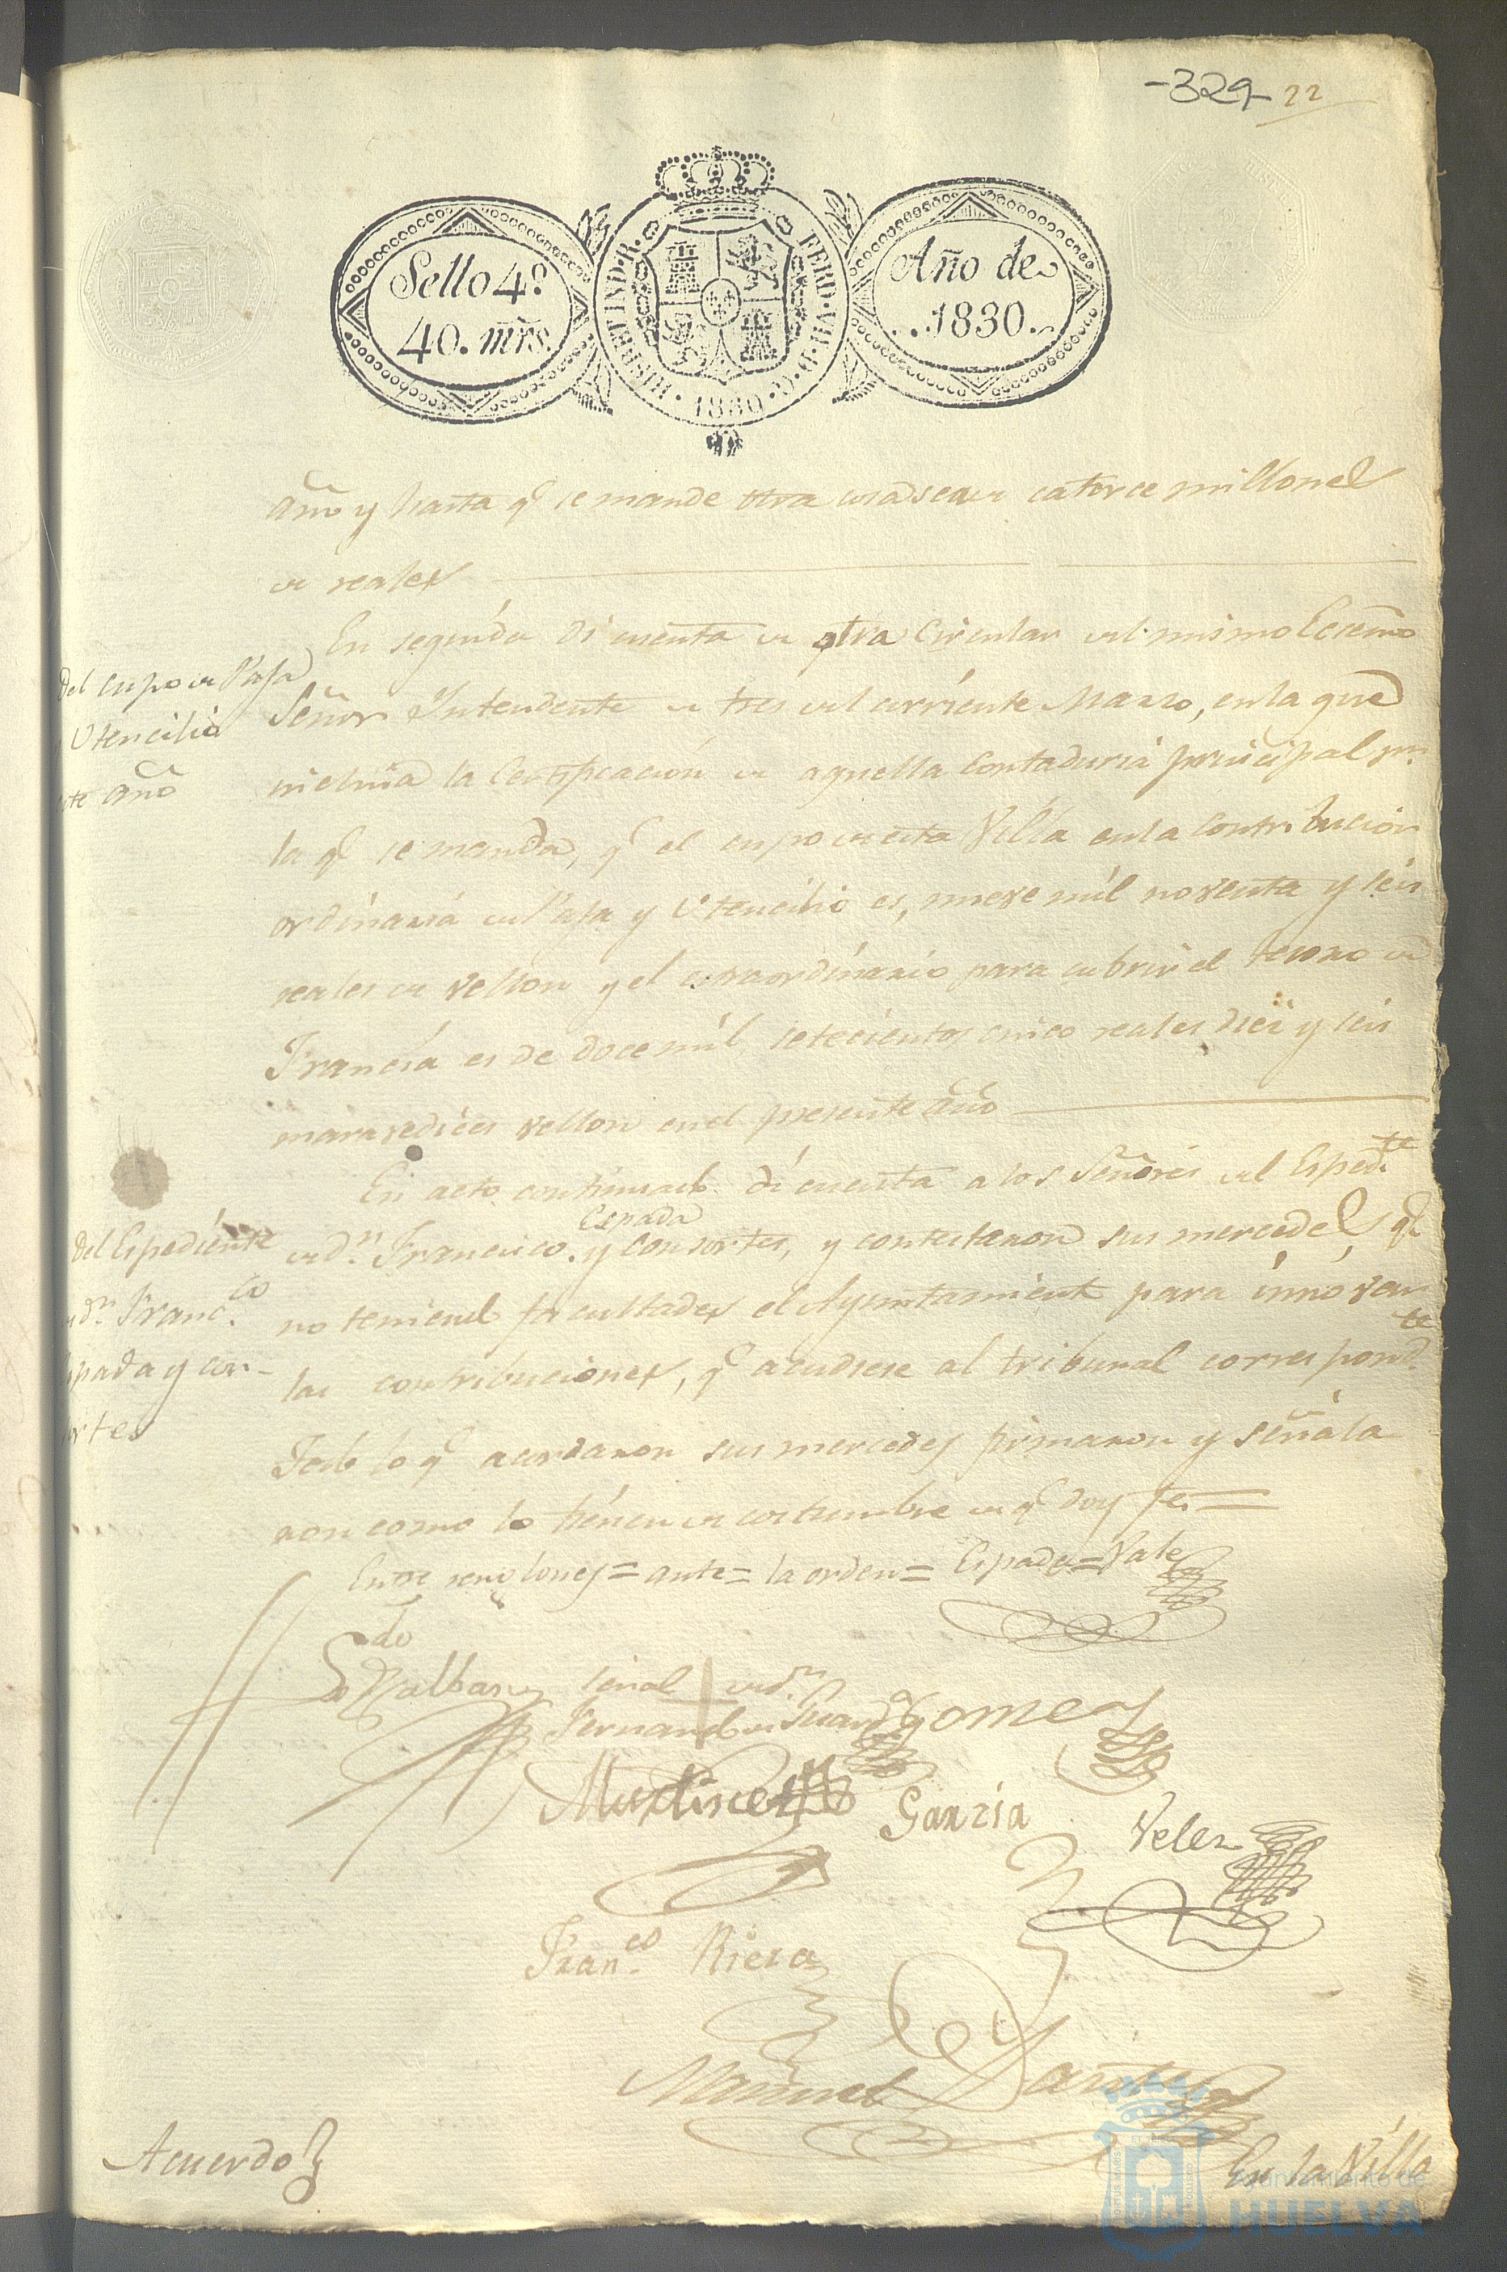 -329- 22
Sello 4º.
40. mrs.
HISP. ET IND. R. FERD. VII. D. G. 1830.
Año de
1830.
año y hasta q.e se mande otra cosa sean catorce millones
de reales
En segúnda dí cuenta de otra Circular del mismo Ecsemo
Señor Yntendente de tres del corriente Marzo, en la que
incluia la Certificación de aquella Contaduria principal por
la q.e se manda, q.e el cupo de esta Villa en la contribucion
ordinaria de Paja y Utencilio es, nueve mil noventa y seis
reales de vellon y el estraordinario para cubrir el tesoro de
Francia es de doce mil setecientos cinco reales diez y seis
maravedices vellon en el presente año
En acto continuado dí cuenta a los Señores del Esped.te
Espada
de D.n Francisco y Consortes, y contestaron sus mercedes, q.e
no teniendo facultades el Ayuntamiento para innovar
las contribuciones, q.e acudiese al tribunal correspond.te
Todo lo q.e acordaron sus mercedes firmaron y señala
ron como lo tienen de costumbre de q.e doy fe =
Entre renglones = ante = la orden = Espada = Vale
Del cupo de Paja
Utencilio
este año
Del Espediente
de D.n Franc.co
Espada y con-
sortes
Ldo Balbas
señal de D.n
Fernando de Suarez
Gomez
Martinez
Garzia
Velez
Fran.co Riera
Manuel Santos
Acuerdo
En la Villa
Ayuntamiento de
HUELVA